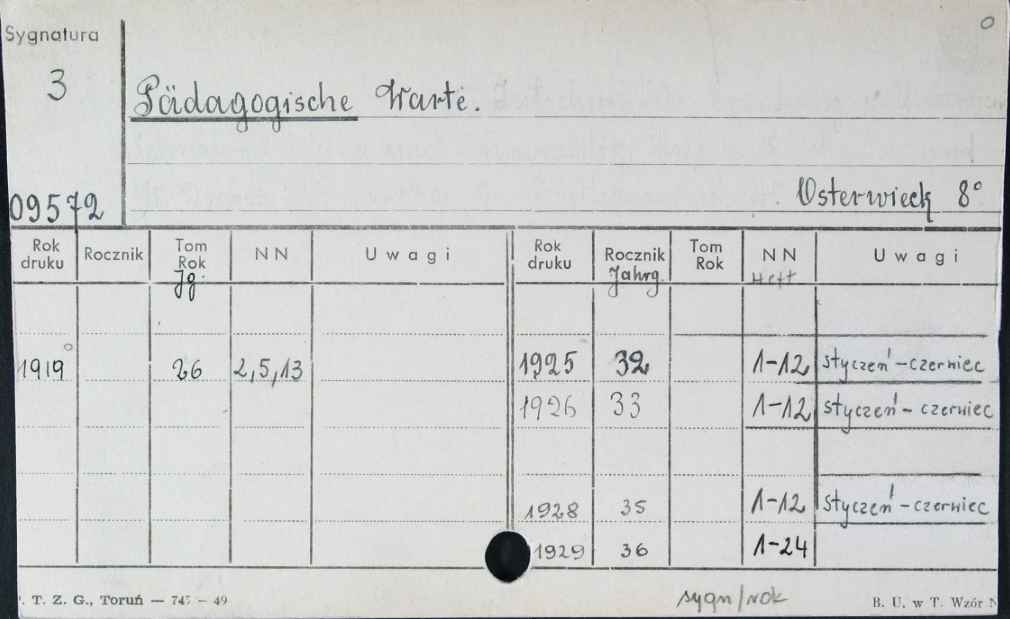 Sygnatura
3
Pädagogische Warte.
09572
Osterwieck 8°
Rok druku Rocznik Tom Rok Jg. NN Uwagi Rok druku Rocznik Jahrg. Tom Rok NN Heft Uwagi
1919 26 2,5,13 1925 32 1-12 styczeń-czerwiec
1926 33 1-12 styczeń-czerwiec
1928 35 1-12 styczeń-czerwiec
1929 36 1-24
sygn/rok
T. Z. G., Toruń — 74 - 49 B. U. w T. Wzór